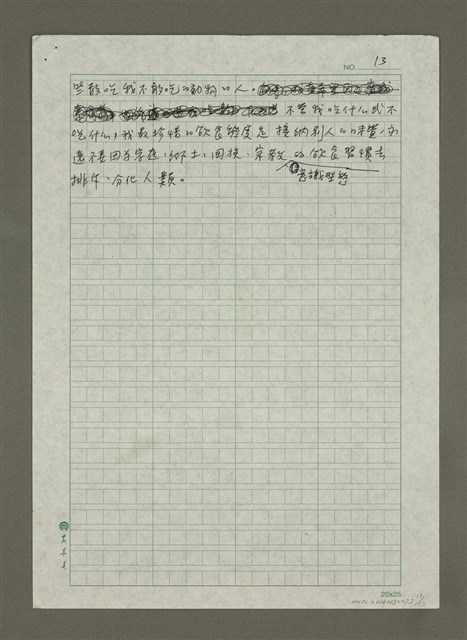 NO. 13
些敢吃我不敢吃的動物的人。
不管我吃什么或不
吃什么,我最珍惜的飲食態度是接納別人的味蕾,永
遠不要因為家庭、鄉土、國族、宗教、的飲食習慣去
意識型態
排斥、分化人類。
20x25